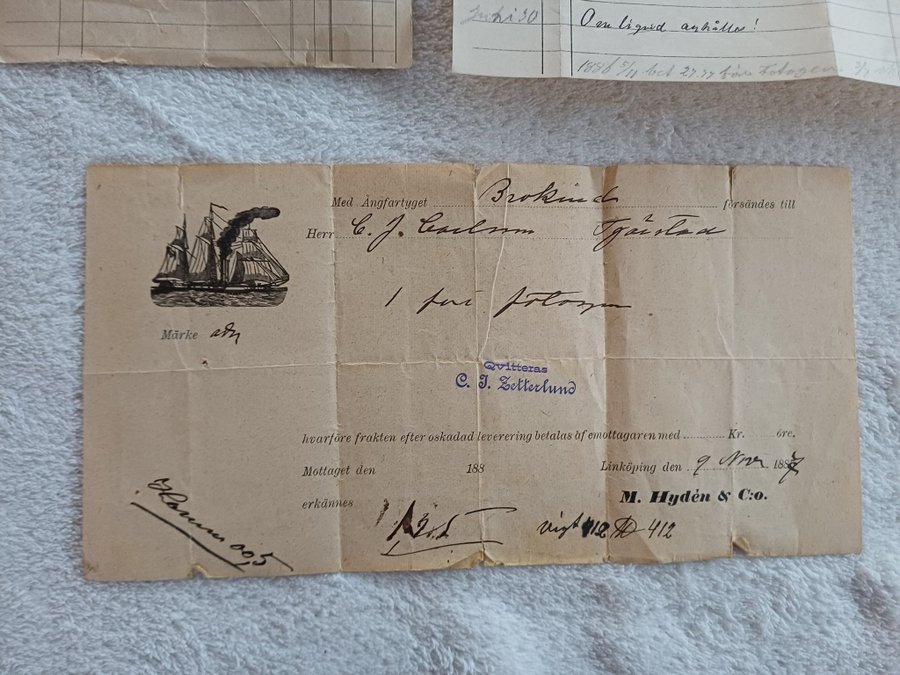 Om liqvid anhålles!
1886
Med Ångfartyget Brokind försändes till
Herr C. J. Carlson Tjärstad
1 fat fotogen
Märke adr
Qvitteras
C. J. Zetterlund
hvarföre frakten efter oskadad leverering betalas af emottagaren med Kr. öre.
Mottaget den 188 Linköping den 9 Nov 1887
erkännes M. Hydén & C:o.
Vigt 412
Hamn 00,5